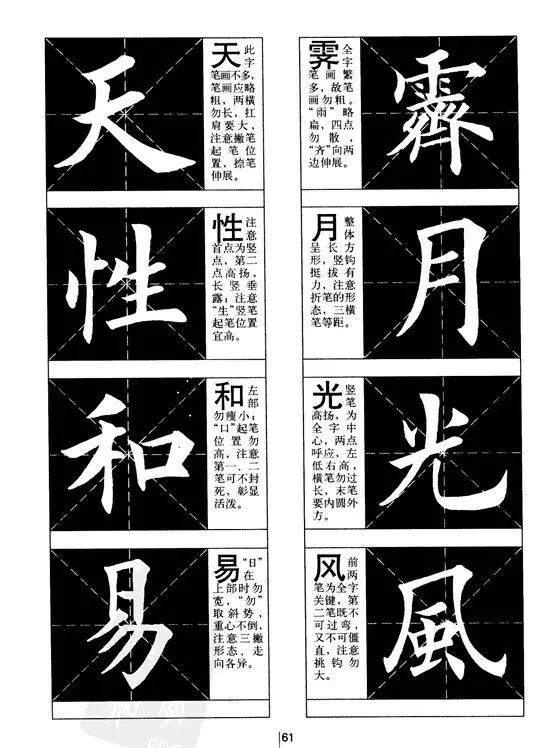 天
天 此
字
笔画不多，
笔画应略
粗，两横
勿长，扛
肩要大，
注意撇笔
起笔位
置，捺笔
伸展。
性
性 注
意
首点为竖
点，第二
点高扬，
长竖垂
露；注意
“生”竖笔
起笔位置
宜高。
和
和 左
部
勿瘦小；
“口”起笔
位置勿
高，注意
第一、二
笔可不封
死，彰显
活泼。
易
易 “日”
在
上部时勿
宽，“勿”
取斜势，
重心不倒，
注意三撇
形态、走
向各异。
霁 全
字
笔画繁
多，故笔
画勿粗。
“雨”略
扁，四点
勿散，
“齐”向两
边伸展。
霽
月 整
体
呈长方
形，竖钩
挺拔有
力，注意
折笔的形
态，三横
笔等距。
月
光 竖
笔
高扬，为
全字中
心，两点
呼应，左
低右高，
横笔勿过
长，末笔
要内圆外
方。
光
风 前
两
笔为全字
关键，第
二笔既不
可过弯，
又不可僵
直，注意
挑钩勿
大。
風
61